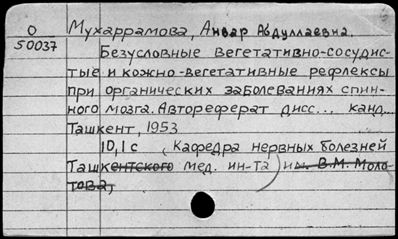 О
50037
Мухаррамова, Анвар Абдуллаевна.
Безусловные вегетативно-сосудис-
тые и кожно-вегетативные рефлексы
при органических заболеваниях спин-
ного мозга. Автореферат дисс.., канд.
Ташкент, 1953
10,1 с (Кафедра нервных болезней
Ташкентского мед. ин-та) им. В.М. Моло-
това,